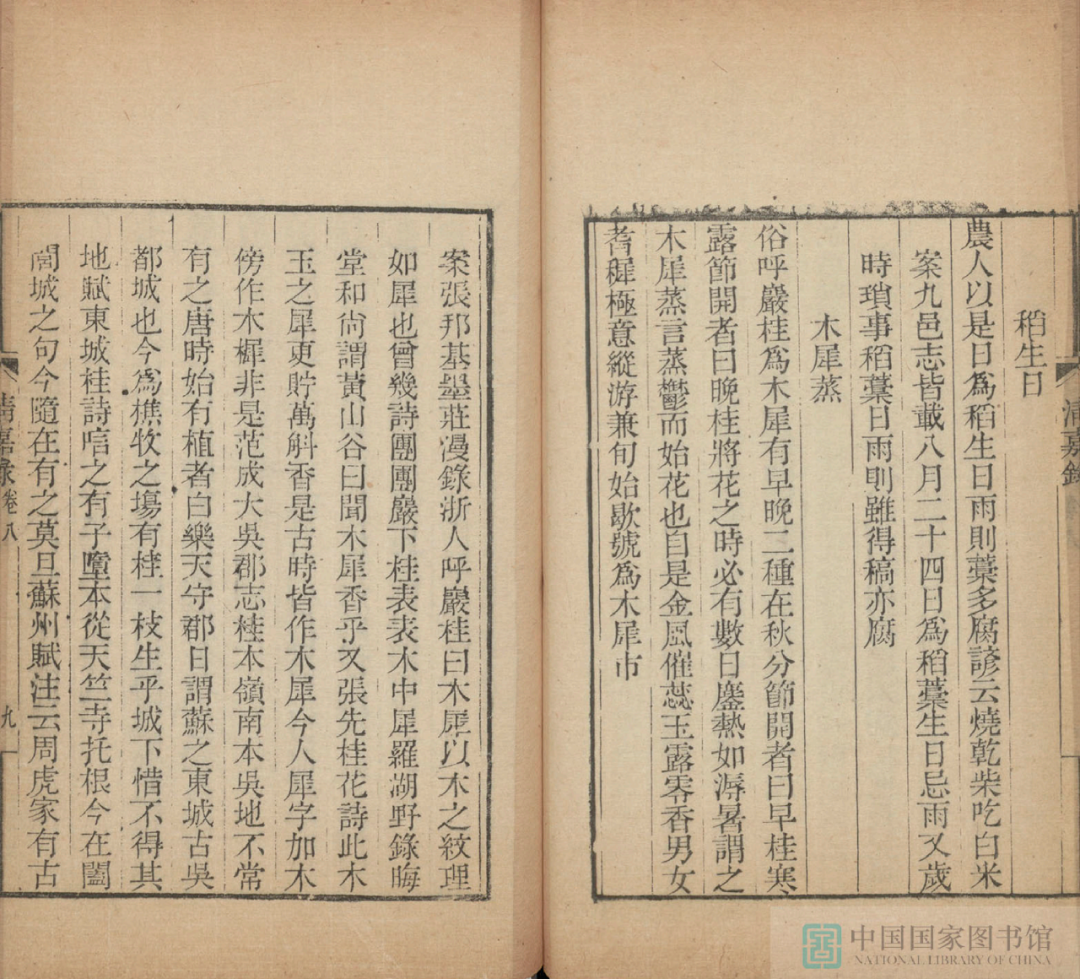 清嘉錄
稻生日
農人以是日爲稻生日雨則藁多腐諺云燒乾柴吃白米
案九邑志皆載八月二十四日爲稻藁生日忌雨又歲
時瑣事稻藁日雨則雖得稿亦腐
木犀蒸
俗呼巖桂爲木犀有早晚二種在秋分節開者曰早桂寒
露節開者曰晚桂將花之時必有數日鏖熱如溽暑謂之
木犀蒸言蒸鬱而始花也自是金風催蕊玉露零香男女
耆穉極意縱游兼旬始歇號爲木犀市
案張邦基墨莊漫錄浙人呼巖桂曰木犀以木之紋理
如犀也曾幾詩團團巖下桂表表木中犀羅湖野錄晦
堂和尙謂黃山谷曰聞木犀香乎又張先桂花詩此木
玉之犀更貯萬斛香是古時皆作木犀今人犀字加木
傍作木樨非是范成大吳郡志桂本嶺南木吳地不常
有之唐時始有植者白樂天守郡日謂蘇之東城古吳
都城也今爲樵牧之場有桂一枝生乎城下惜不得其
地賦東城桂詩唁之有子墮本從天竺寺托根今在闔
閭城之句今隨在有之莫旦蘇州賦注云周虎家有古
清嘉錄 卷八 九
中国国家图书馆
NATIONAL LIBRARY OF CHINA